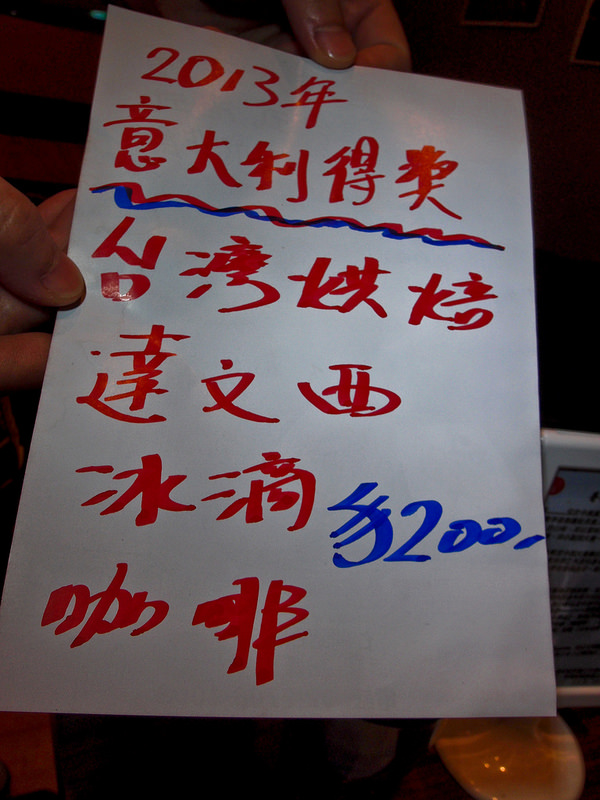 2013年
意大利得奖
台灣烘焙
達文西
冰滴
$200.-
咖啡